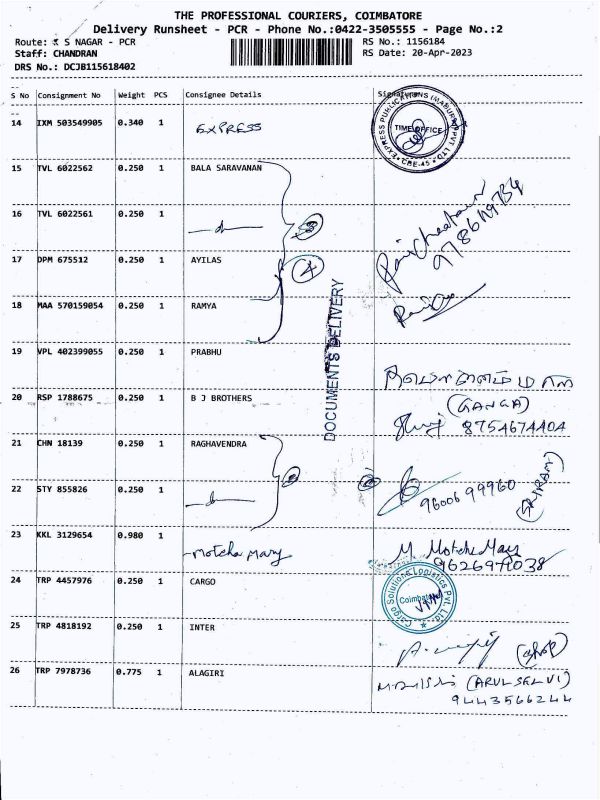 THE PROFESSIONAL COURIERS, COIMBATORE
Delivery Runsheet - PCR - Phone No.:0422-3505555 - Page No.:2
Route: K S NAGAR - PCR RS No.: 1156184
Staff: CHANDRAN RS Date: 20-Apr-2023
DRS No.: DCJB115618402
S No Consignment No Weight PCS Consignee Details Signature
14 IXM 503549905 0.340 1 EXPRESS
TIME OFFICE
CBE-45
15 TVL 6022562 0.250 1 BALA SARAVANAN
16 TVL 6022561 0.250 1
17 DPM 675512 0.250 1 AYILAS
4
18 MAA 570159054 0.250 1 RAMYA
DOCUMENTS DELIVERY
19 VPL 402399055 0.250 1 PRABHU
20 RSP 1788675 0.250 1 B J BROTHERS (GANGA)
8754674404
21 CHN 18139 0.250 1 RAGHAVENDRA
22 STY 855826 0.250 1 9600699960 (SRIRAM)
23 KKL 3129654 0.980 1 Motcha Mary M Motcha Mary
24 TRP 4457976 0.250 1 CARGO
Cargo Solutions Logistics Pvt. Ltd.
25 TRP 4818192 0.250 1 INTER
26 TRP 7978736 0.775 1 ALAGIRI (ARULSELVI)
9443566244